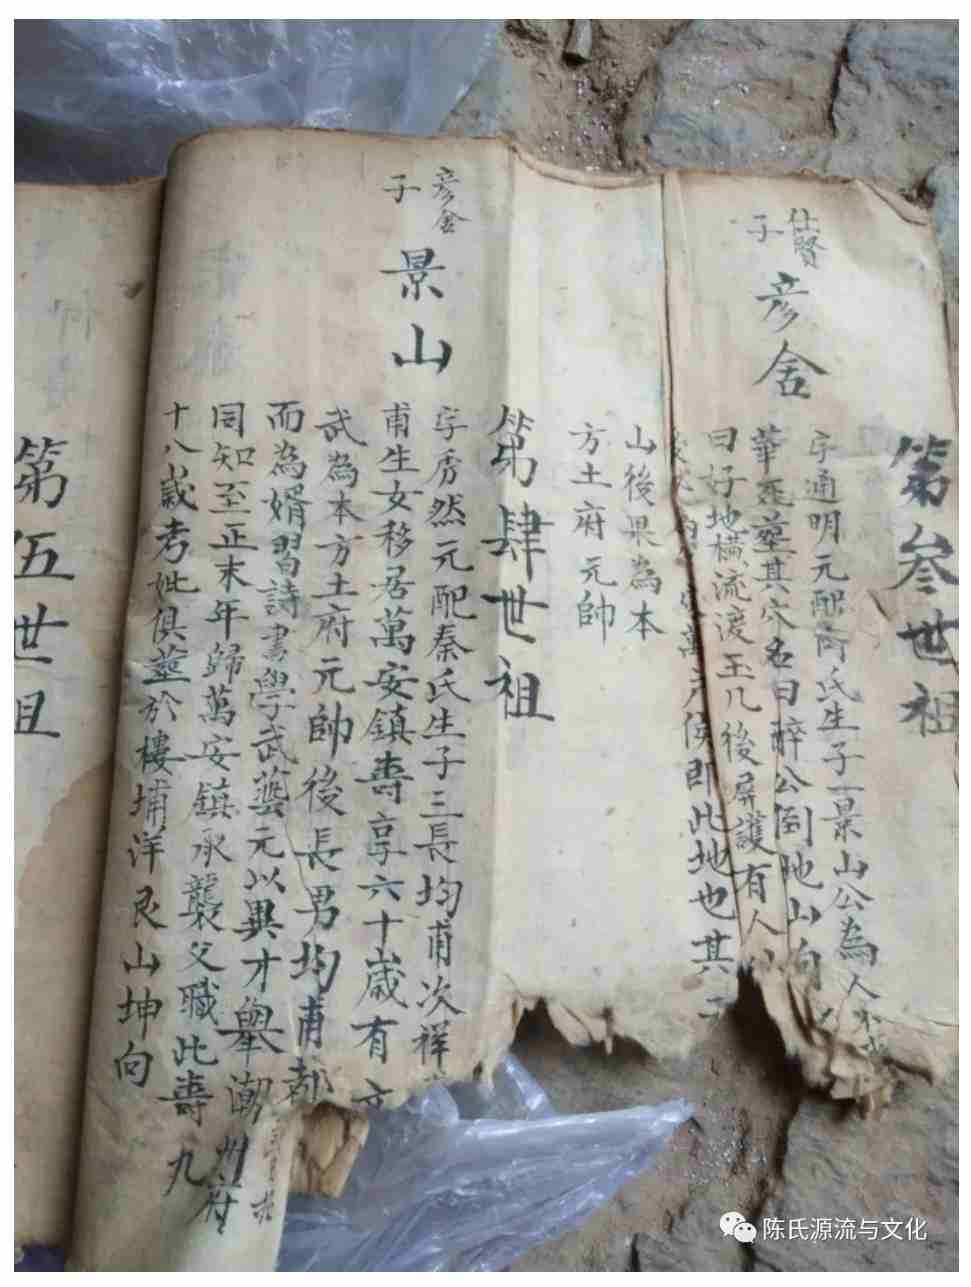 第叁世祖
仕賢
子
彦舍
字通明元配 氏生子一景山公為人
華 葬其穴名曰醉公倒地山向
曰好地橫流渡玉几後屏護有人
萬 侯即此地也其
山後果為本
方土府元帥
第肆世祖
彦舍
子
景山
字秀然元配秦氏生子三長均甫次祥
甫生女移居萬安鎮壽享六十歲有
武為本方土府元帥後長男均甫
而為婿習詩書學武藝元以異才舉潮州府
同知至正末年歸萬安鎮承襲父職此壽九
十八歲考妣俱葬於樓埔洋艮山坤向
第伍世祖
陈氏源流与文化